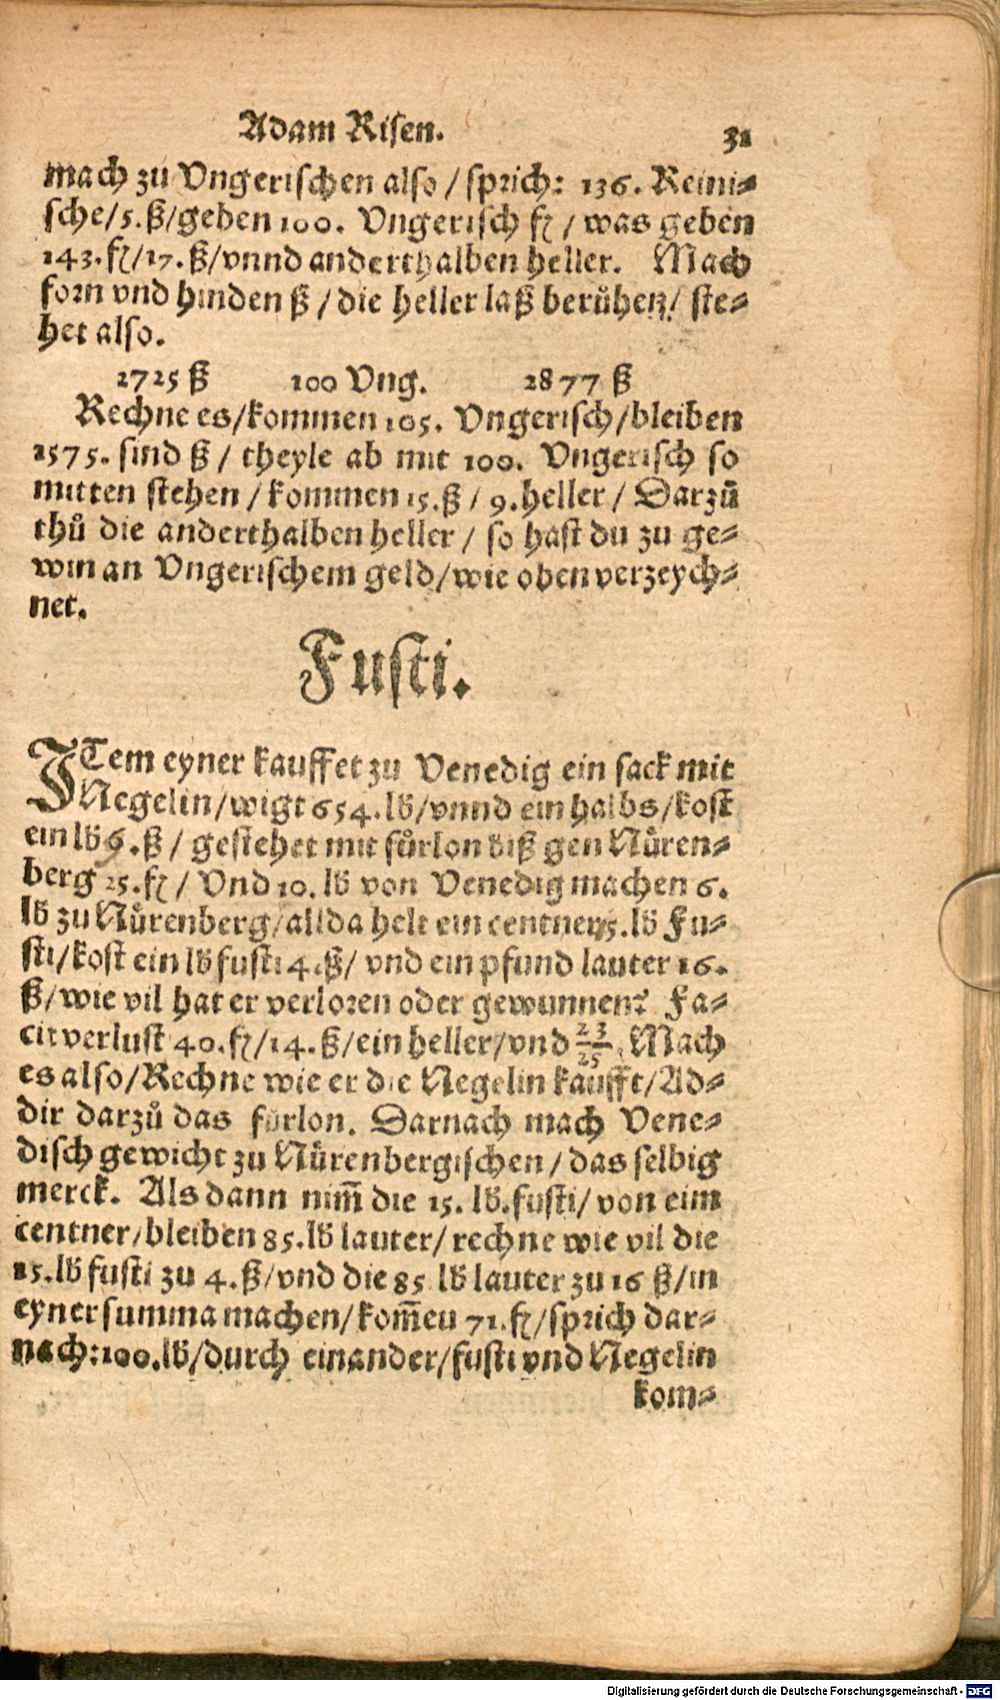 Adam Risen. 31
mach zů Vngerischen also / sprich: 136. Reini⸗
sche/5.ß/geben 100. Vngerisch fl / was geben
143.fl/17.ß/vnnd anderthalben heller. Mach
forn vnd hinden ß / die heller laß berůhen/ ste⸗
het also.
2725 ß 100 Vng. 2877 ß
Rechne es/kommen 105. Vngerisch/bleiben
1575. sind ß / theyle ab mit 100. Vngerisch so
mitten stehen / kommen 15.ß / 9.heller / Darzů
thů die anderthalben heller / so hast du zu ge⸗
win an Vngerischem geld/wie oben verzeych⸗
net.
Fusti.
ITem eyner kauffet zu Venedig ein sack mit
Negelin/wigt 654.lb/vnnd ein halbs/kost
ein lb 6.ß / gestehet mit fůrlon biß gen Nůren⸗
berg 25.fl / Vnd 10.lb von Venedig machen 6.
lb zu Nůrenberg/allda helt ein centner 15.lb Fu⸗
sti/kost ein lb fusti 4.ß/ vnd ein pfund lauter 16.
ß/wie vil hat er verloren oder gewunnen? Fa⸗
cit verlust 40.fl/14.ß/ein heller/vnd 23/25. Mach
es also/Rechne wie er die Negelin kaufft/Ad⸗
dir darzů das fůrlon. Darnach mach Vene⸗
disch gewicht zu Nůrenbergischen / das selbig
merck. Als dann nim̃ die 15. lb.fusti/ von eim
centner/bleiben 85.lb lauter/ rechne wie vil die
15.lb fusti zu 4.ß/vnd die 85 lb lauter zu 16 ß/in
eyner summa machen/kom̃eu 71.fl/sprich dar⸗
nach:100.lb/durch einander/fusti vnd Negelin
kom⸗
Digitalisierung gefördert durch die Deutsche Forschungsgemeinschaft - DFG